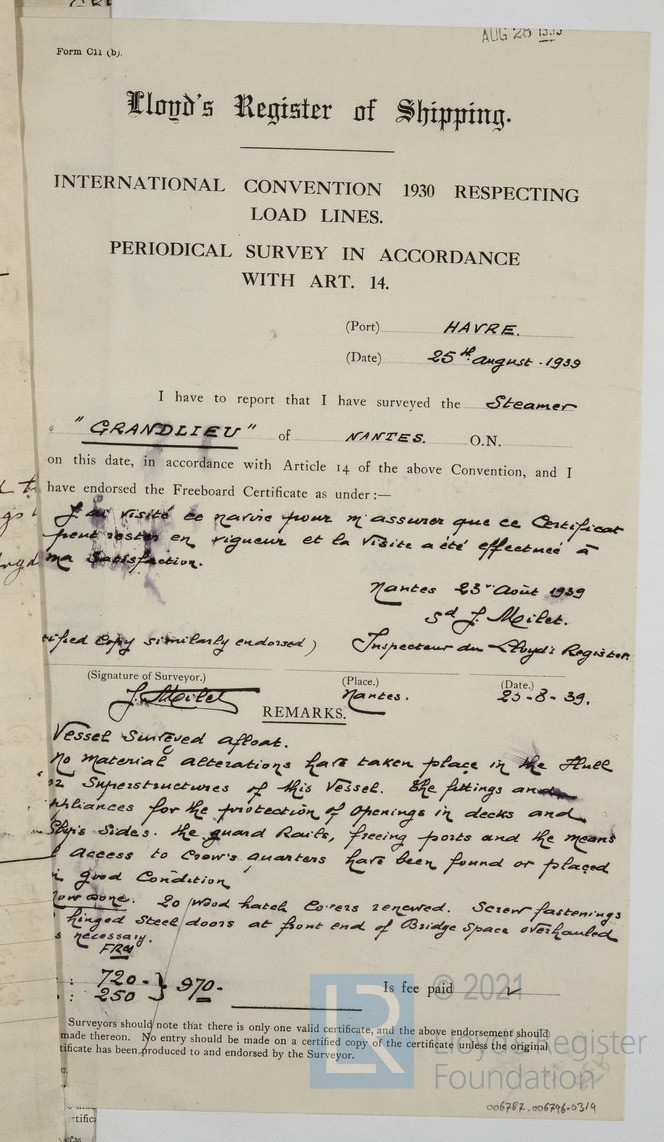 AUG 28 1939
Form C11 (b).
Lloyd's Register of Shipping.
INTERNATIONAL CONVENTION 1930 RESPECTING
LOAD LINES.
PERIODICAL SURVEY IN ACCORDANCE
WITH ART. 14.
(Port) HAVRE.
(Date) 25th August. 1939
I have to report that I have surveyed the Steamer
"GRANDLIEU" of NANTES. O.N.
on this date, in accordance with Article 14 of the above Convention, and I
have endorsed the Freeboard Certificate as under:—
J'ai visité ce navire pour m'assurer que ce Certificat
peut rester en vigueur et la visite a été effectuée à
ma Satisfaction.
Nantes 23 Août 1939
sd J. Milet.
tified Copy similarly endorsed) Inspecteur du Lloyd's Register.
(Signature of Surveyor.) (Place.) (Date.)
J. Milet Nantes. 23-8-39.
REMARKS.
Vessel Surveyed afloat.
No material alterations have taken place in the Hull
or Superstructures of this Vessel. The fittings and
ppliances for the protection of openings in decks and
Ship's Sides. the guard Rails, freeing ports and the means
Access to Crew's quarters have been found or placed
in good Condition
now done: 20 Wood hatch Covers renewed. Screw fastenings
hinged Steel doors at front end of Bridge Space overhauled
s necessary.
FRcs
: 720.- } 970.-
: 250
Is fee paid ✓
Surveyors should note that there is only one valid certificate, and the above endorsement should
made thereon. No entry should be made on a certified copy of the certificate unless the original
tificate has been produced to and endorsed by the Surveyor.
LR
© 2021
Lloyd's Register
Foundation
006787-006796-0319